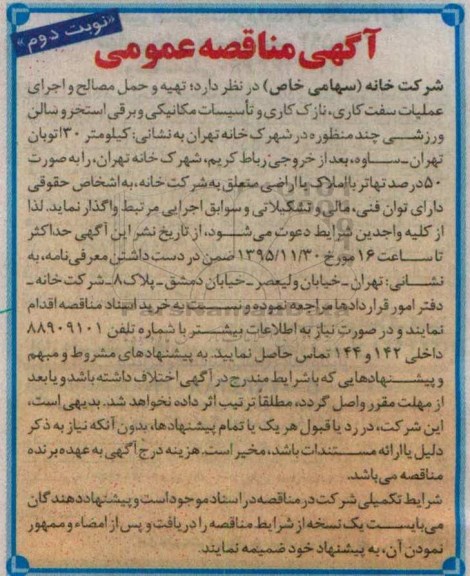 «نوبت دوم»
آگهی مناقصه عمومی
شرکت خانه (سهامی خاص) در نظر دارد؛ تهیه و حمل مصالح و اجرای
عملیات سفت کاری، نازک کاری و تأسیسات مکانیکی و برقی استخر و سالن
ورزشی چند منظوره در شهرک خانه تهران به نشانی: کیلومتر ۳۰ اتوبان
تهران ـ ساوه، بعد از خروجی رباط کریم، شهرک خانه تهران، را به صورت
۵۰ درصد تهاتر با املاک یا اراضی متعلق به شرکت خانه، به اشخاص حقوقی
دارای توان فنی، مالی و تشکیلاتی و سوابق اجرایی مرتبط واگذار نماید. لذا
از کلیه واجدین شرایط دعوت می‌شود، از تاریخ نشر این آگهی حداکثر
تا ساعت ۱۶ مورخ ۱۳۹۵/۱۱/۳۰ ضمن در دست داشتن معرفی‌نامه، به
نشانی: تهران ـ خیابان ولیعصر ـ خیابان دمشق ـ پلاک ۸ ـ شرکت خانه ـ
دفتر امور قراردادها مراجعه نموده و نسبت به خرید اسناد مناقصه اقدام
نمایند و در صورت نیاز به اطلاعات بیشتر با شماره تلفن ۸۸۹۰۹۱۰۱
داخلی ۱۴۲ و ۱۴۴ تماس حاصل نمایید. به پیشنهادهای مشروط و مبهم
و پیشنهادهایی که با شرایط مندرج در آگهی اختلاف داشته باشد و یا بعد
از مهلت مقرر واصل گردد، مطلقاً ترتیب اثر داده نخواهد شد. بدیهی است،
این شرکت، در رد یا قبول هر یک یا تمام پیشنهادها، بدون آنکه نیاز به ذکر
دلیل یا ارائه مستندات باشد، مخیر است. هزینه درج آگهی به عهده برنده
مناقصه می‌باشد.
شرایط تکمیلی شرکت در مناقصه در اسناد موجود است و پیشنهاد دهندگان
می‌بایست یک نسخه از شرایط مناقصه را دریافت و پس از امضاء و ممهور
نمودن آن، به پیشنهاد خود ضمیمه نمایند.